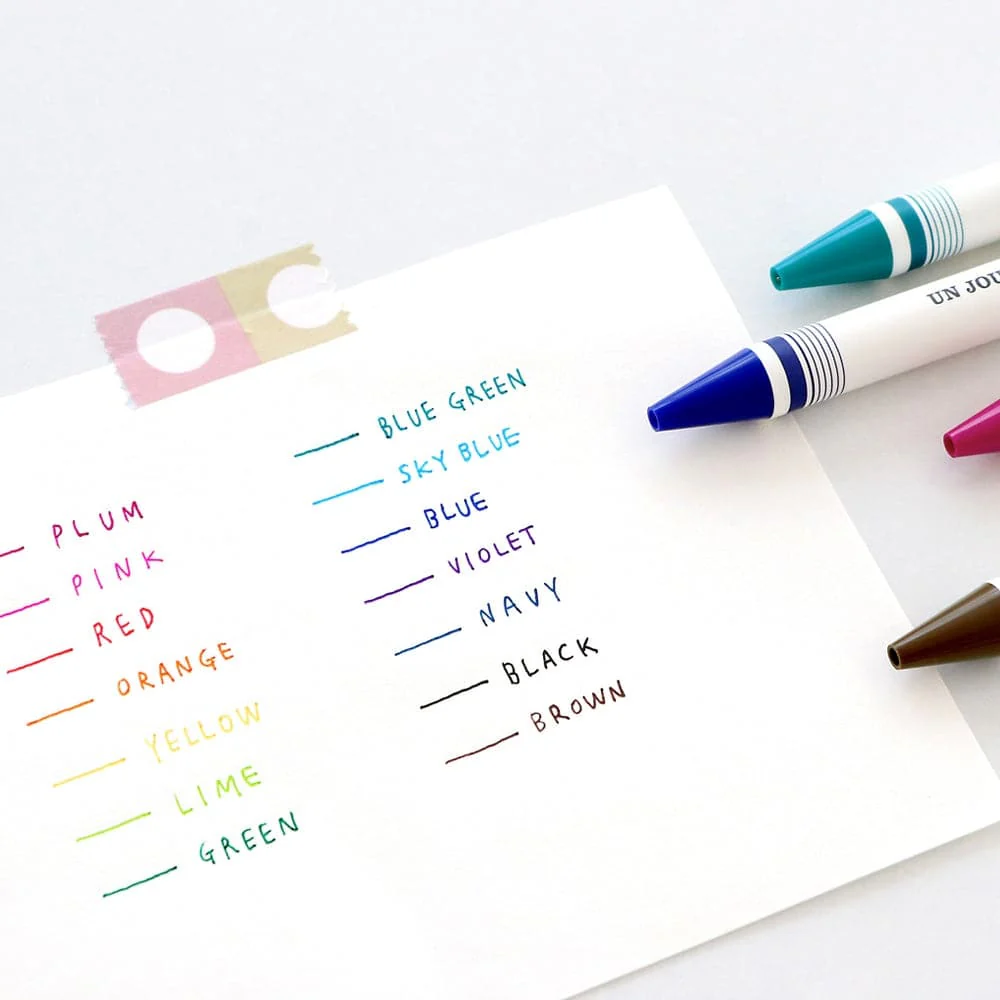 PLUM
PINK
RED
ORANGE
YELLOW
LIME
GREEN
BLUE GREEN
SKY BLUE
BLUE
VIOLET
NAVY
BLACK
BROWN
UN JOU